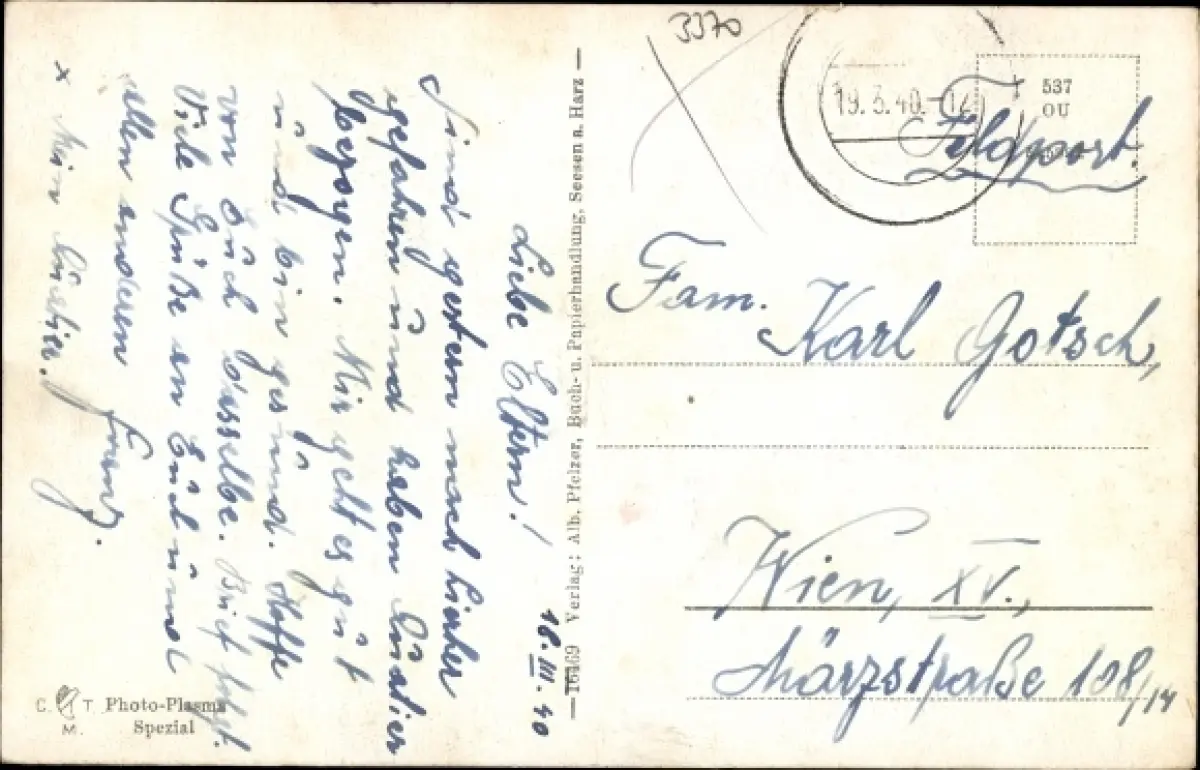 16.III.40
Liebe Eltern!
Sind gestern nach hierher
gefahren und haben Quartier
bezogen. Mir geht es gut
und bin gesund. Hoffe
von Euch dasselbe. Brief folgt.
Viele Grüße an Euch und
allen anderen Franz.
x Mein Quartier.
C. T. M. Photo-Plasma
Spezial
— 16469 Verlag: Alb. Pfelzer, Buch- u. Papierhandlung, Seesen a. Harz —
3370
19.3.40.-12
537
OU
Feldpost.
Fam.
Karl Gotsch,
Wien, XV.,
Märzstraße 108/14